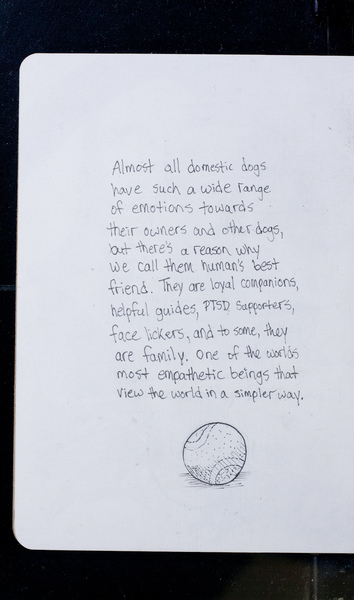 Almost all domestic dogs
have such a wide range
of emotions towards
their owners and other dogs,
but there's a reason why
we call them human's best
friend. They are loyal companions,
helpful guides, PTSD supporters,
face lickers, and to some, they
are family. One of the worlds
most empathetic beings that
view the world in a simpler way.